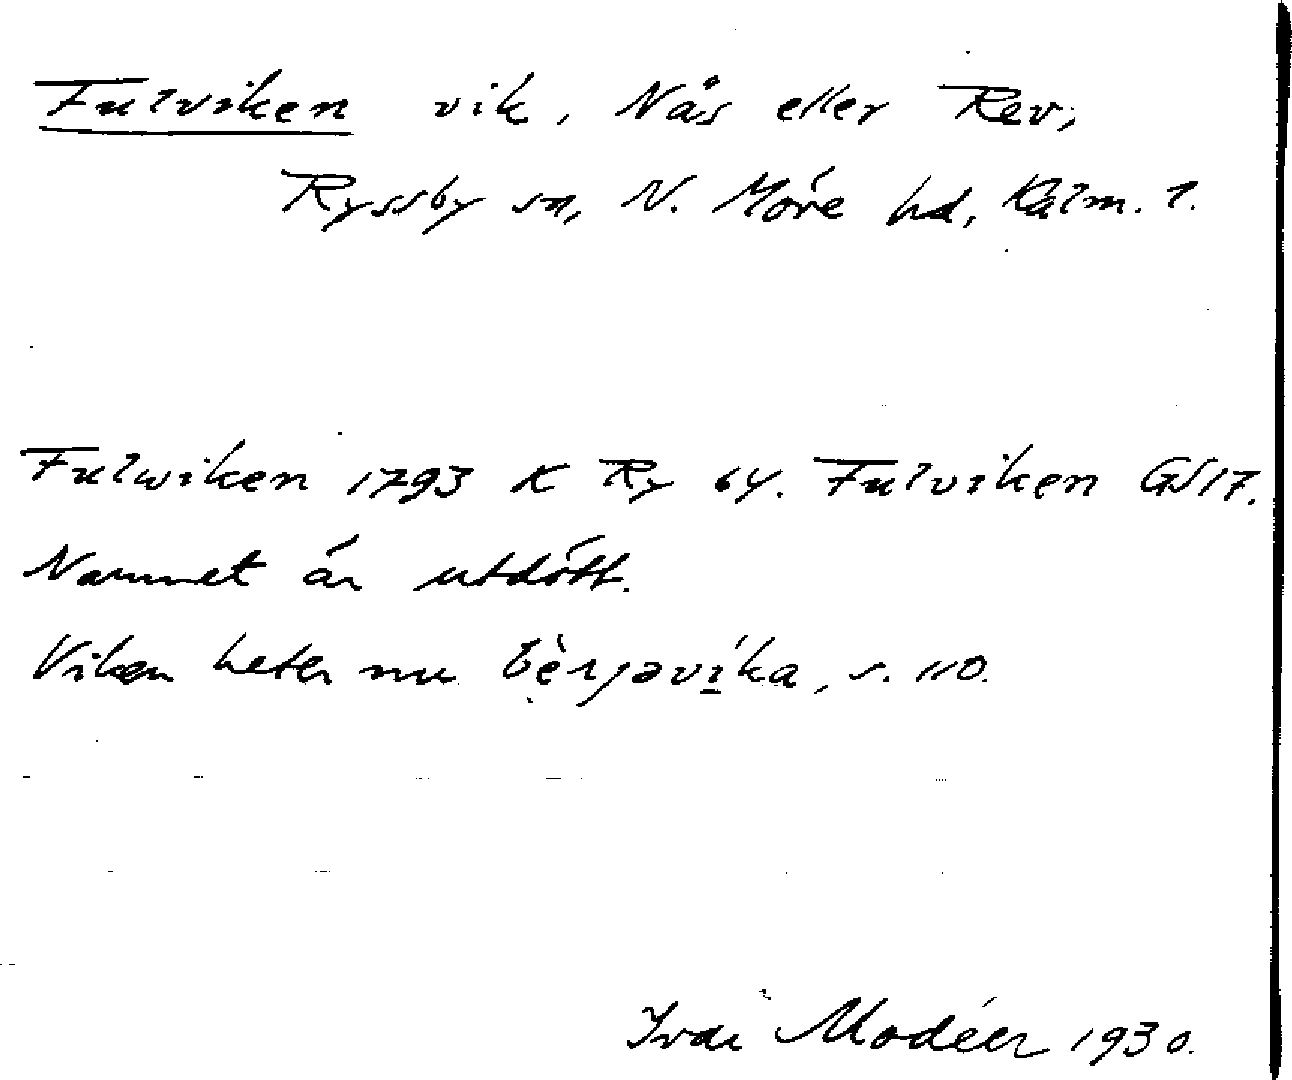 Fulviken vik, Nås eller Rev,
Ryssby sn, N. Möre hd, Kalm. l.
Fulwiken 1793 K Ry 64. Fulviken GS17.
Namnet är utdött.
Viken heter nu bèrjəvíka, s. 110.
Ivar Modéer 1930.